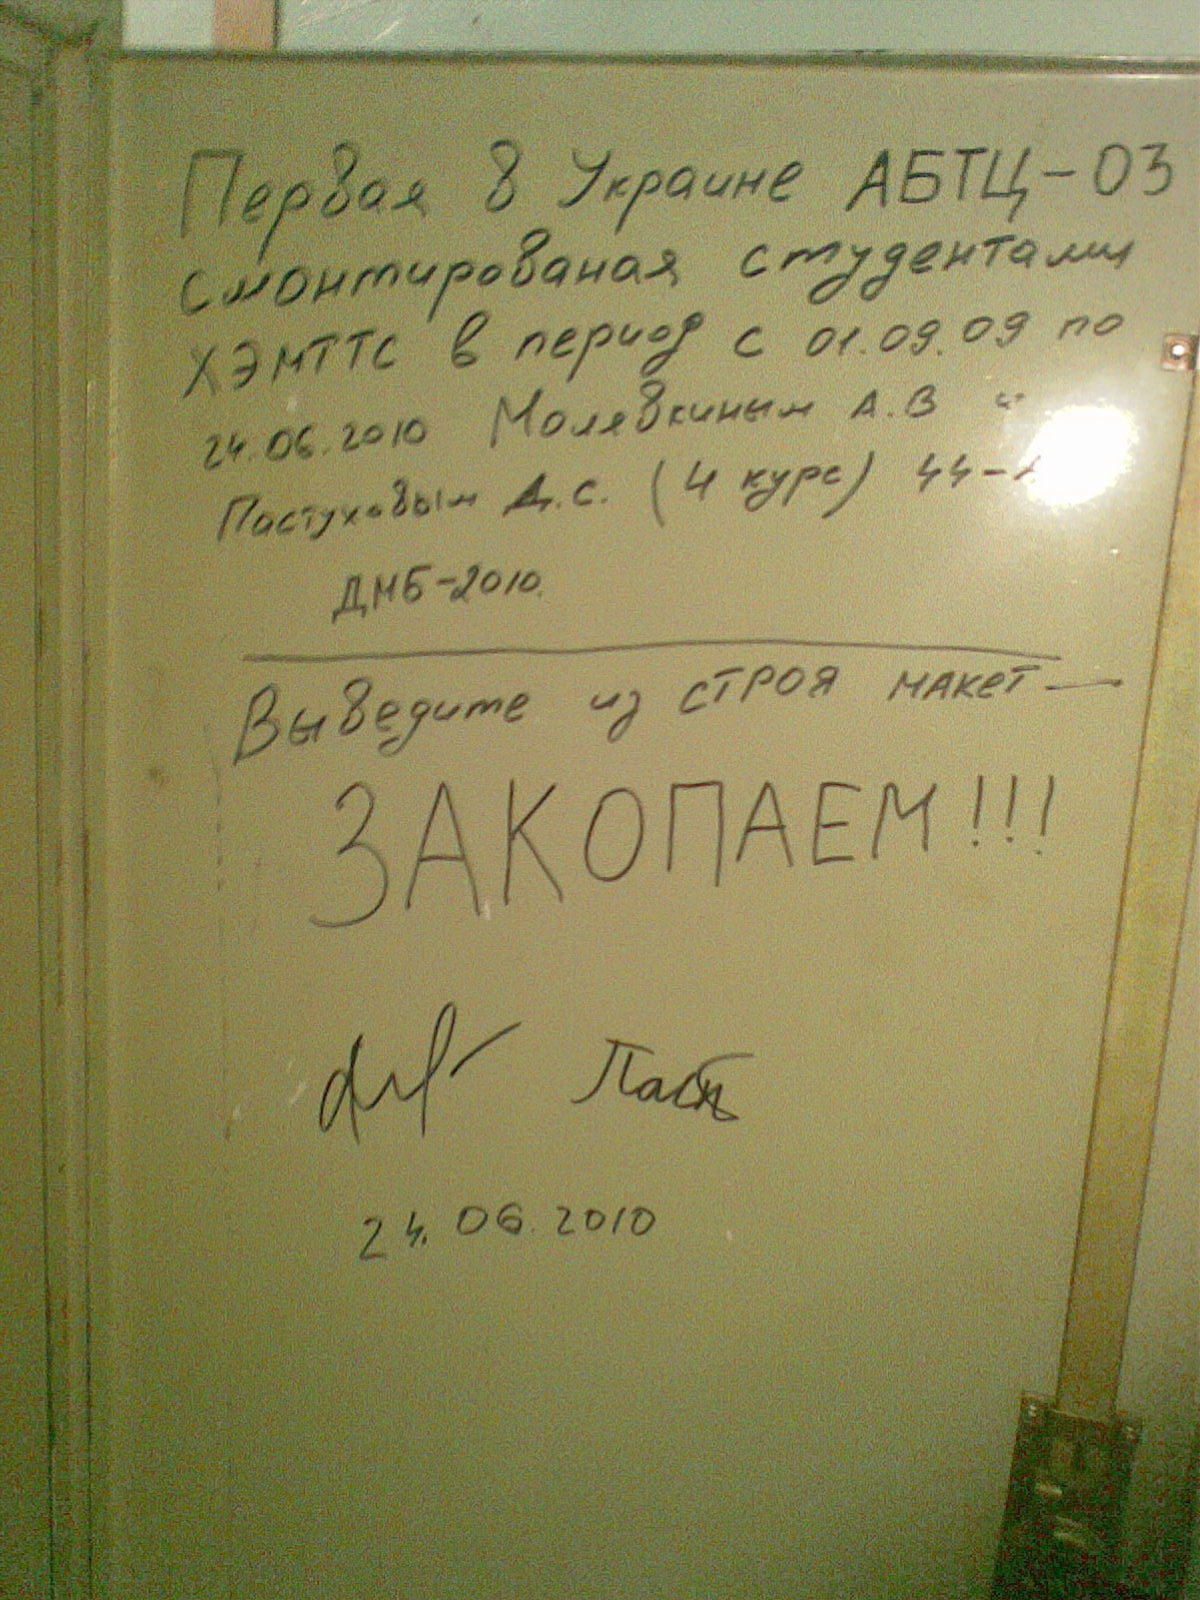 Первая в Украине АБТЦ-03
смонтированая студентами
ХЭМТТС в период с 01.09.09 по
24.06.2010 Молявкиным А.В и
Пастуховым Д.С. (4 курс) 44-
ДМБ-2010.
Выведите из строя макет —
ЗАКОПАЕМ!!!
24.06.2010